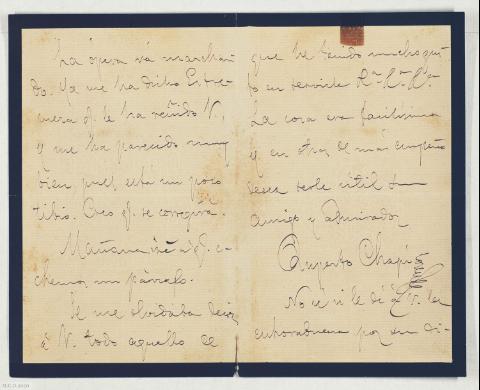 La ópera vá marchan-
do. Ya me ha dicho Estre-
mera q. le ha reñido V.,
y me ha parecido muy
bien pues está un poco
tibio. Creo q. se corregirá.
Mañana iré á q. e-
chemos un párrafo.
Se me olvidaba decir
á V. todo aquello de
que he tenido mucho gus-
to en servirle &ª &ª &ª
La cosa era facilísima
y en otras de más empeño
desea serle útil su
amigo y admirador
Ruperto Chapí
No sé si le dí á V. la
enhorabuena por su di-